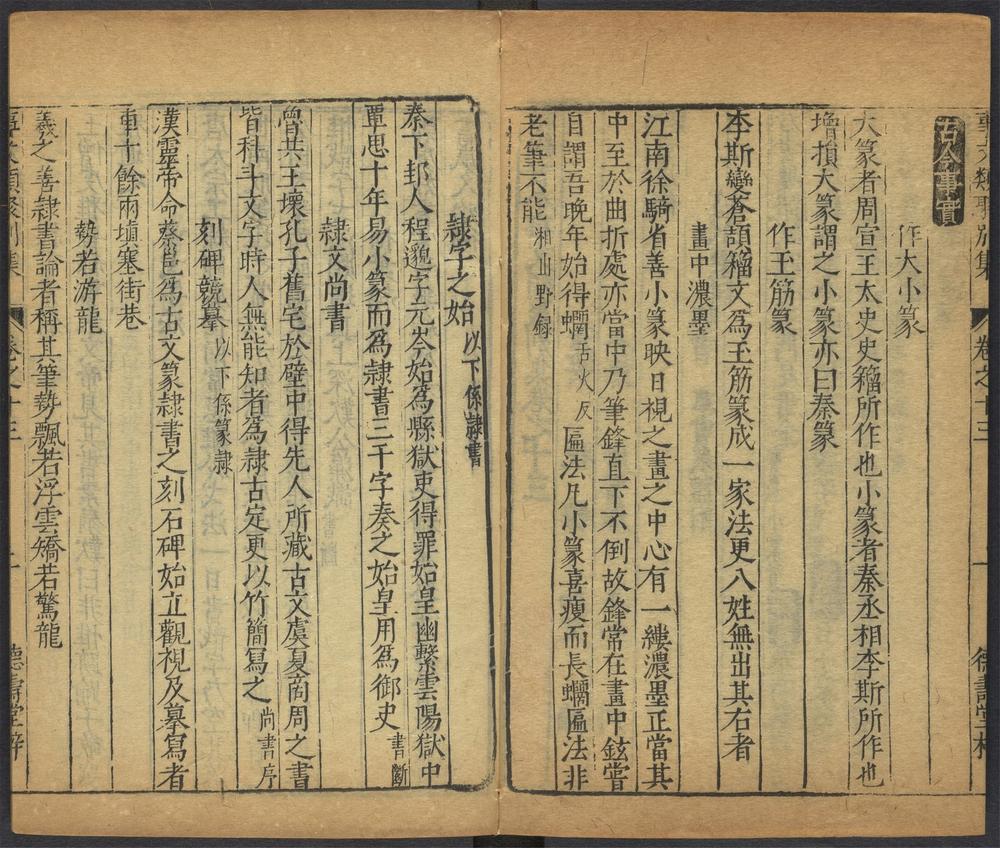 事文類聚別集 卷之十三 一 德壽堂梓
古今事實
作大小篆
大篆者周宣王太史史籀所作也小篆者秦丞相李斯所作也
增損大篆謂之小篆亦曰秦篆
作玉筋篆
李斯變蒼頡籀文爲玉筋篆成一家法更八姓無出其右者
畫中濃墨
江南徐騎省善小篆映日視之畫之中心有一縷濃墨正當其
中至於曲折處亦當中乃筆鋒直下不倒故鋒常在畫中鉉嘗
自謂吾晚年始得䗤舌火反匾法凡小篆喜瘦而長䗤匾法非
老筆不能湘山野録
隸字之始以下係隸書
秦下邽人程邈字元岑始爲縣獄吏得罪始皇幽繫雲陽獄中
覃思十年易小篆而爲隸書三千字奏之始皇用爲御史書斷
隸文尚書
魯共王壞孔子舊宅於壁中得先人所藏古文虞夏商周之書
皆科斗文字時人無能知者爲隸古定更以竹簡寫之尚書序
刻碑競摹以下係篆隸
漢靈帝命蔡邕爲古文篆隸書之刻石碑始立觀視及摹寫者
車十餘兩塡塞街巷
勢若游龍
羲之善隸書論者稱其筆勢飄若浮雲矯若驚龍
事文類聚別集 卷之十三 德壽堂梓